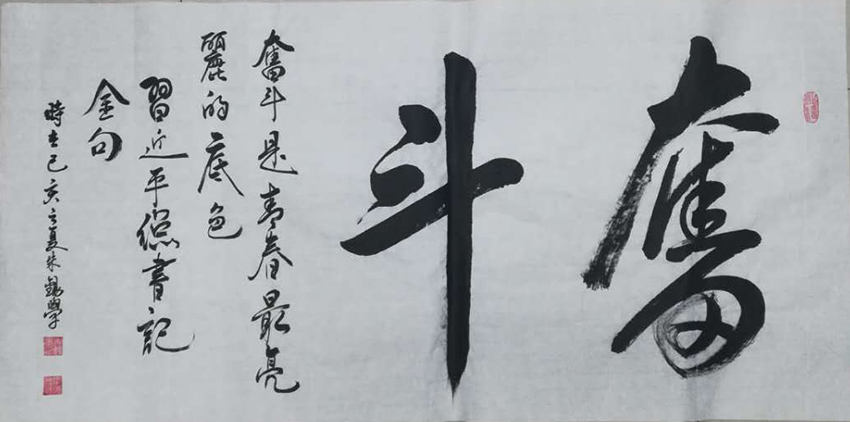 奮斗
奮斗是青春最亮
麗的底色
習近平總書記
金句
時在己亥之夏朱學